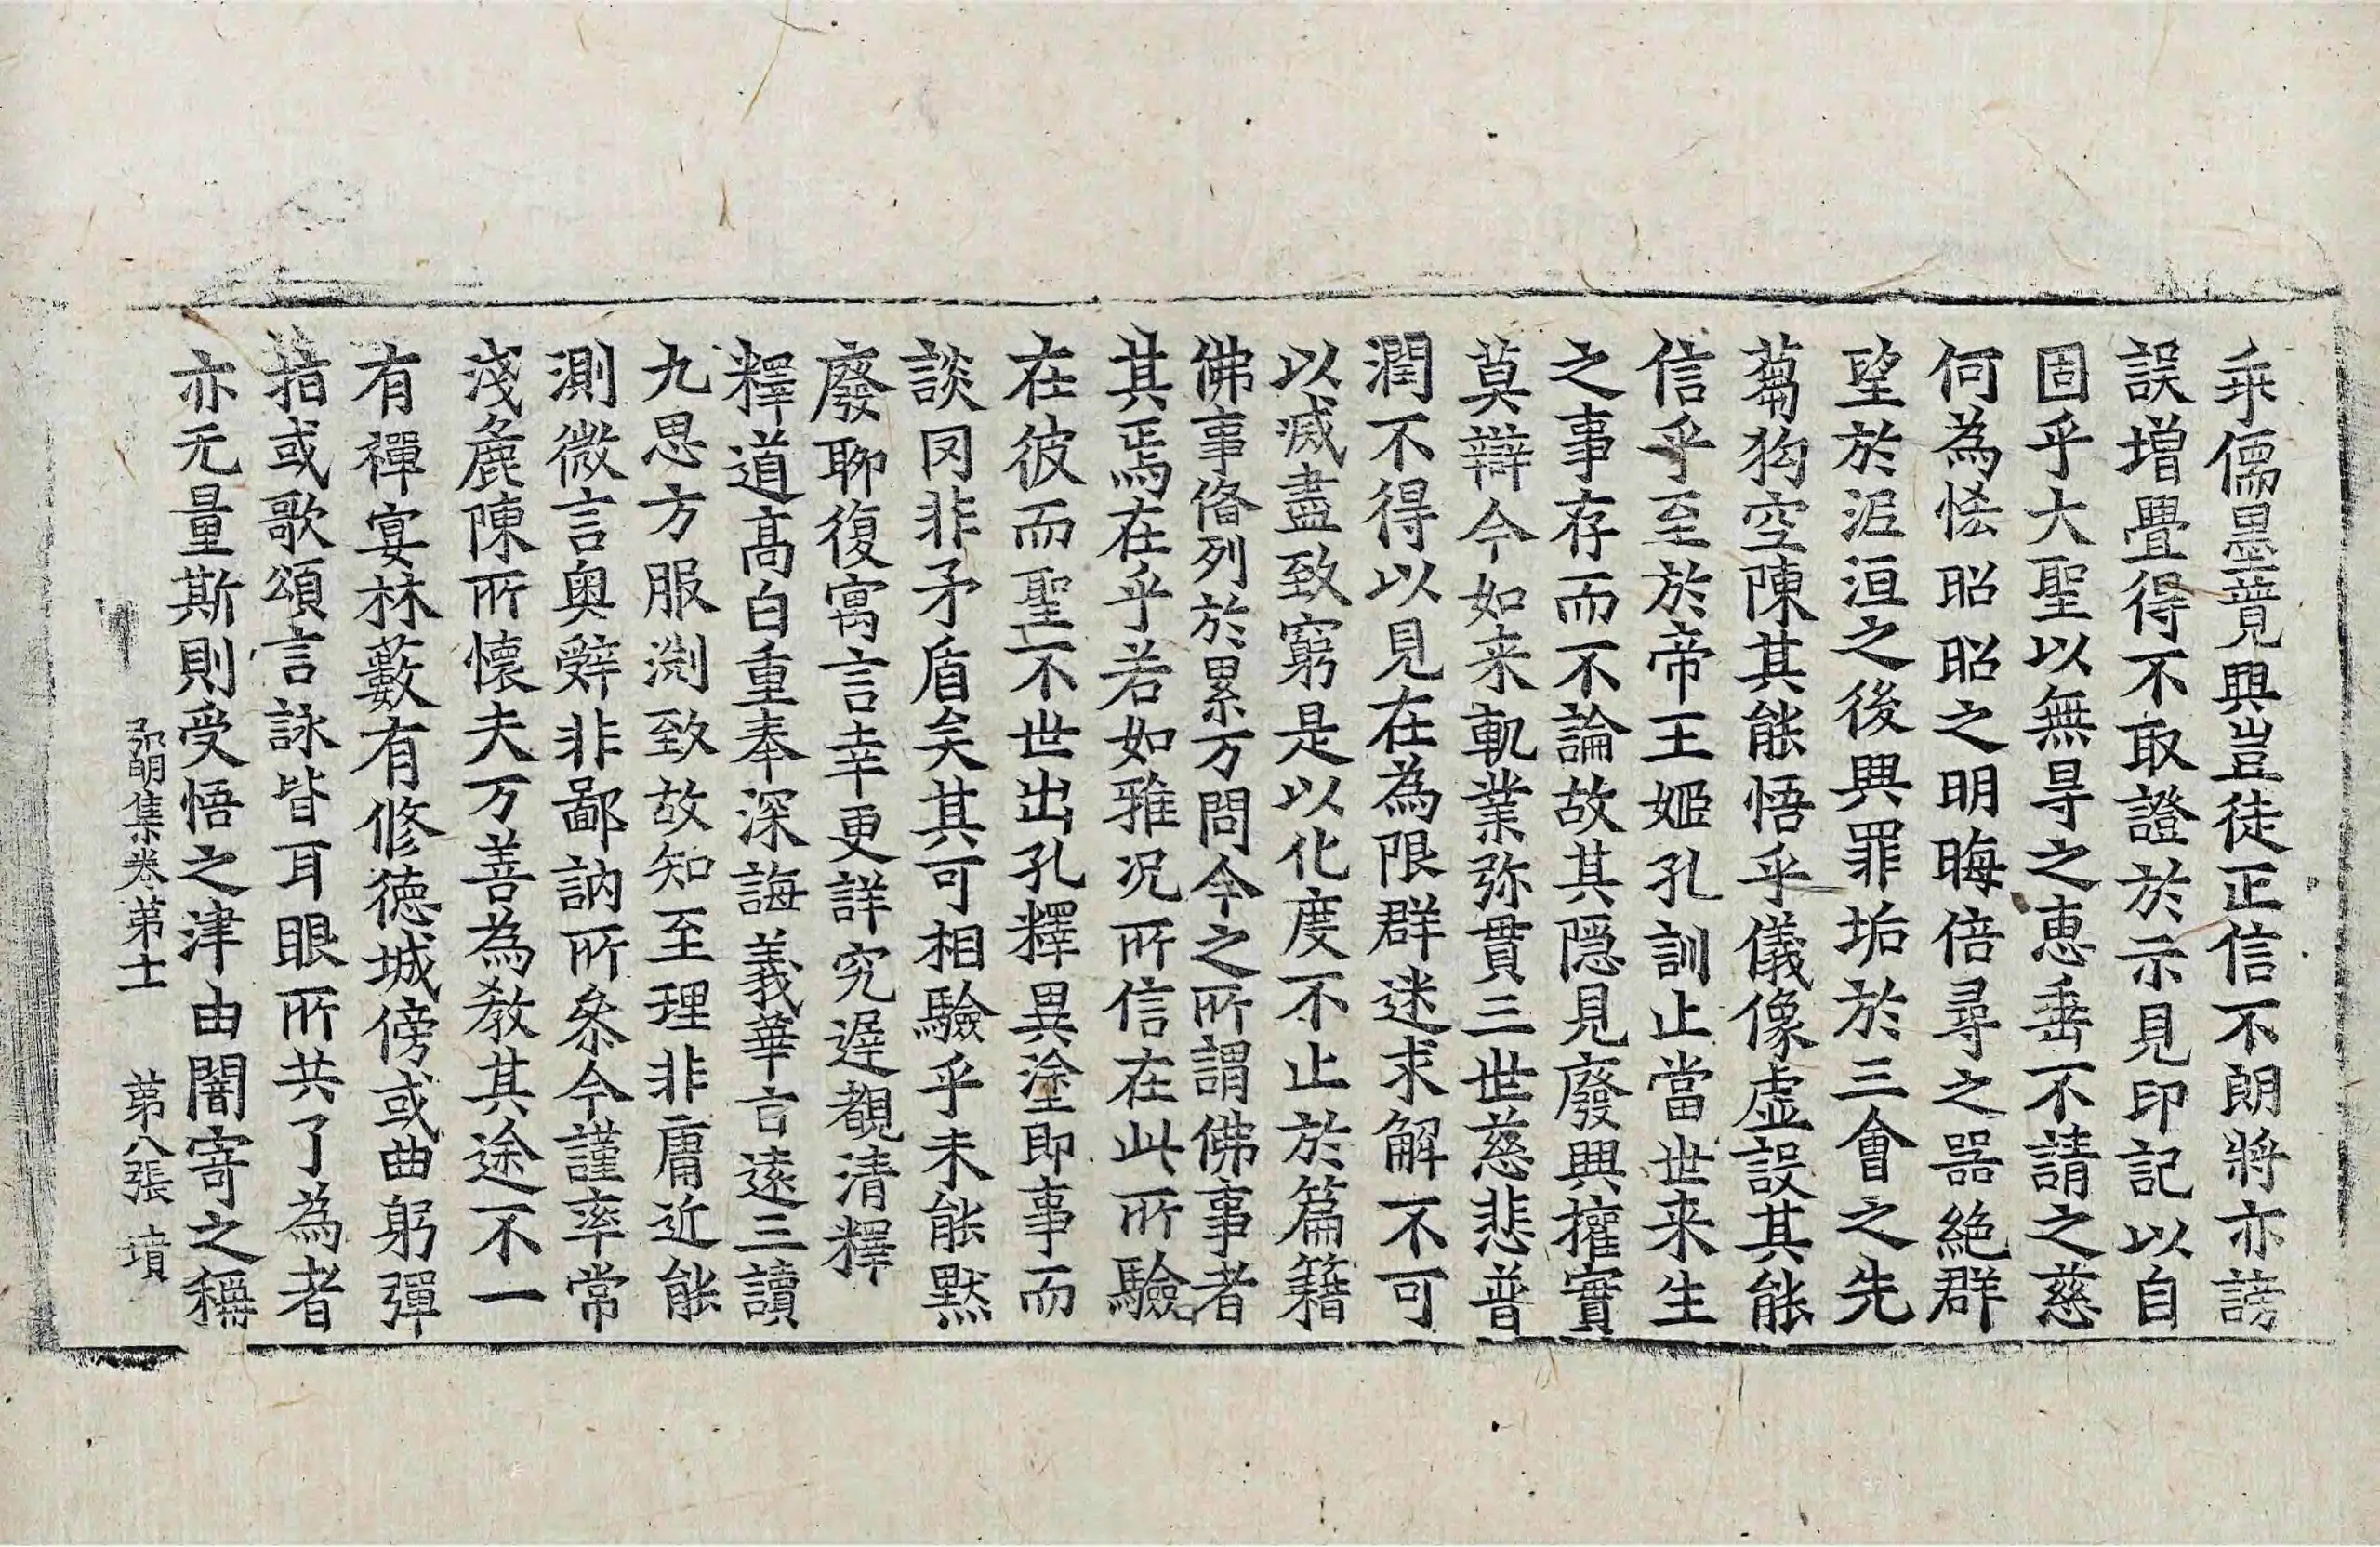 乖儒墨競興豈徒正信不朗將亦謗
誤增疊得不取證於示見印記以自
固乎大聖以無㝵之惠垂不請之慈
何為恡昭昭之明晦倍尋之器絕群
望於泥洹之後興罪垢於三會之先
蒭狗空陳其能悟乎儀像虛設其能
信乎至於帝王姬孔訓止當世来生
之事存而不論故其隱見廢興權實
莫辯今如来軌業弥貫三世慈悲普
潤不得以見在為限群迷求解不可
以滅盡致窮是以化度不止於篇籍
佛事俻列於累万問今之所謂佛事者
其焉在乎若如雅况所信在此所驗
在彼而聖不世出孔釋異塗即事而
談罔非矛盾矣其可相驗乎未能默
廢聊復寓言幸更詳究遲覩清釋
釋道髙白重奉深誨義華言遠三讀
九思方服淵致故知至理非庸近能
測微言奥辤非鄙訥所叅今謹率常
淺麁陳所懷夫万善為教其途不一
有禪宴林藪有修德城傍或曲躬彈
指或歌頌言詠皆耳眼所共了為者
亦无量斯則受悟之津由闇寄之稱
弘明集卷第士　第八張　墳